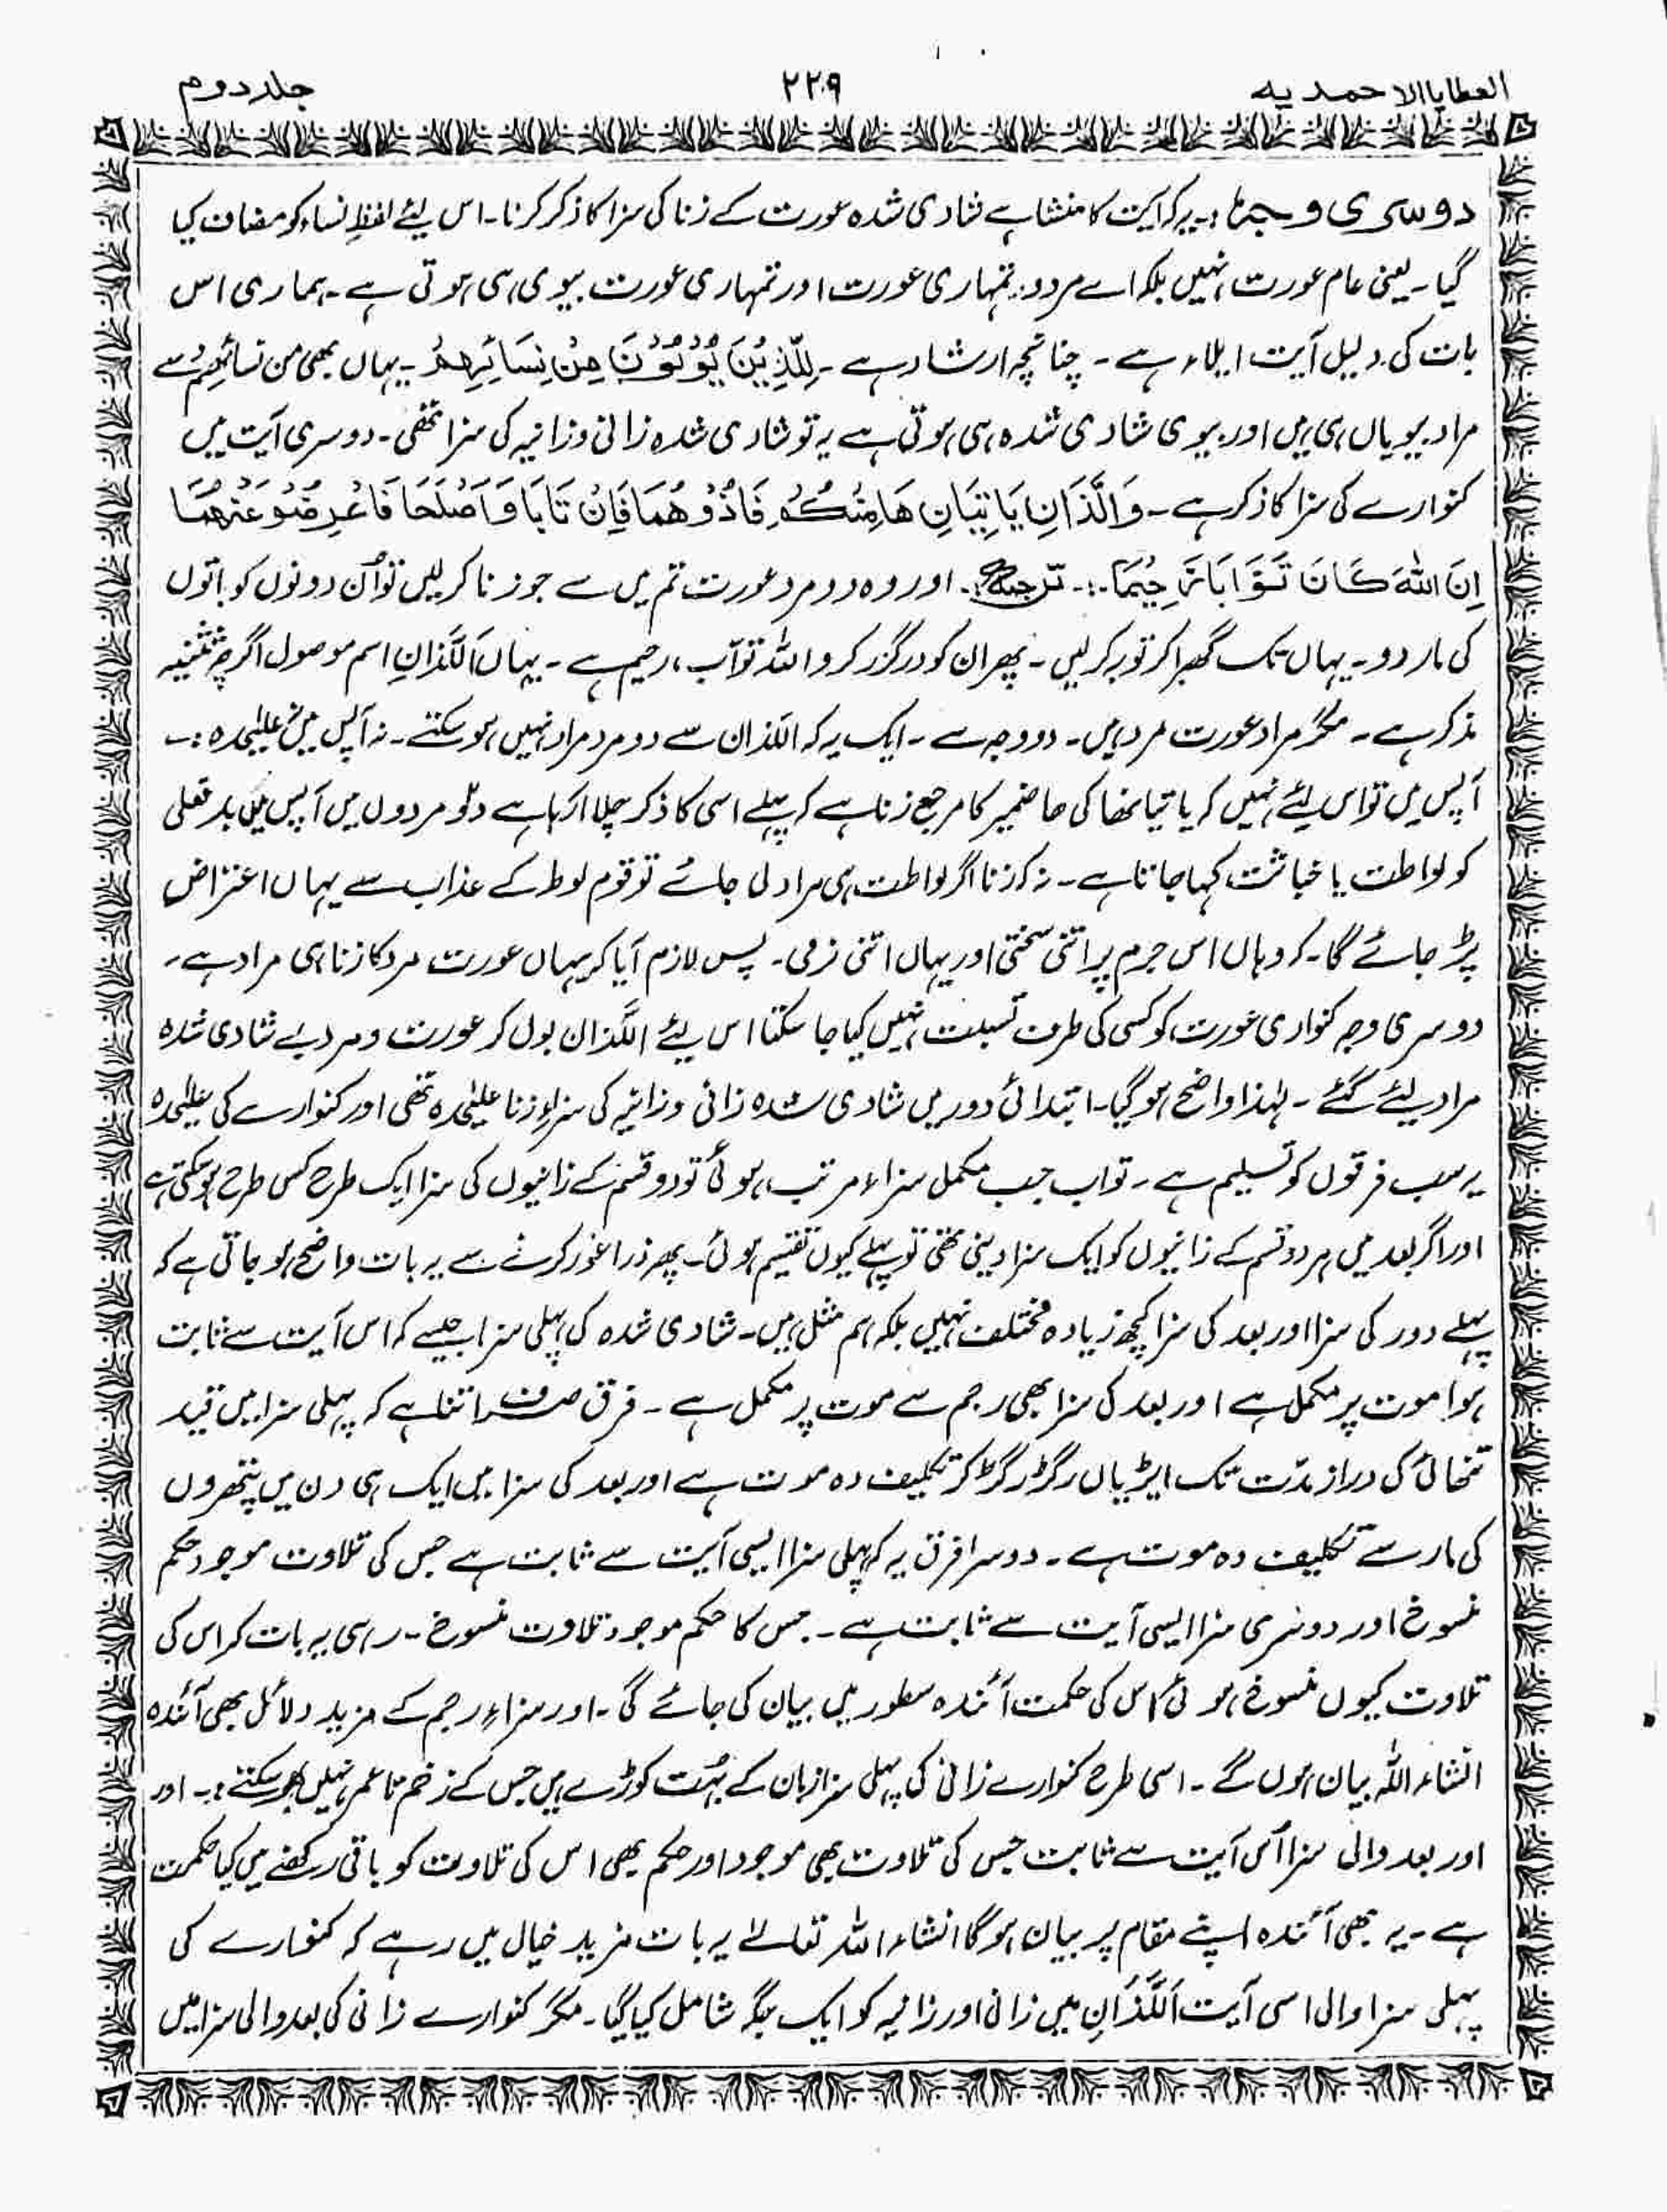 العطایا الاحمدیہ ۲۲۹ جلد دوم
دوسری وجہ:۔ یہ کہ آیت کا منشا ہے شادی شدہ عورت کے زنا کی سزا کا ذکر کرنا۔ اس لیئے لفظِ نساء کو مضاف کیا
گیا۔ یعنی عام عورت نہیں بلکہ اے مردو: تمہاری عورت اور تمہاری عورت بیوی ہی ہوتی ہے۔ ہماری اس
بات کی دلیل آیت ایلاء ہے۔ چنانچہ ارشاد ہے۔ لِلَّذِيْنَ يُوْلُوْنَ مِنْ نِسَائِهِمْ۔ یہاں بھی من نسائھم سے
مراد بیویاں ہی ہیں اور بیوی شادی شدہ ہی ہوتی ہے یہ تو شادی شدہ زانی وزانیہ کی سزا تھی۔ دوسری آیت میں
کنوارے کی سزا کا ذکر ہے۔ وَالَّذَانِ يَاتِيَانِ هَا مِنْكُمْ فَاٰذُوْهُمَا فَاِنْ تَابَا وَاَصْلَحَا فَاَعْرِضُوْ عَنْهُمَا
اِنَ اللّٰهَ كَانَ تَوَّابًا رَّحِيْمًا۔:۔ ترجمہ:۔ اور وہ دو مرد عورت تم میں سے جو زنا کرلیں تو اُن دونوں کو باتوں
کی مار دو۔ یہاں تک گھبرا کر توبہ کرلیں۔ پھر ان کو درگزر کرو اللہ توّاب، رحیم ہے۔ یہاں اَلَّذانِ اسم موصول اگرچہ تثنیہ
مذکر ہے۔ مگر مراد عورت مرد ہیں۔ دو وجہ سے۔ ایک یہ کہ الّذان سے دو مرد مراد نہیں ہو سکتے۔ نہ آپس میں نہ علیٰحدہ:۔
آپس میں تو اس لیئے نہیں کہ یاتیانھا کی ھا ضمیر کا مرجع زنا ہے کہ پہلے اسی کا ذکر چلا آرہا ہے دو مردوں میں آپس میں بدفعلی
کو لواطت یا خباثت کہا جاتا ہے۔ نہ کہ زنا اگر لواطت ہی مراد لی جائے تو قوم لوط کے عذاب سے یہاں اعتراض
پڑ جائے گا۔ کہ وہاں اس جرم پر اتنی سختی اور یہاں اتنی نرمی۔ پس لازم آیا کہ یہاں عورت مرد کا زنا ہی مراد ہے۔
دوسری وجہ کنواری عورت کو کسی کی طرف نسبت نہیں کیا جا سکتا اس لیئے الَّذان بول کر عورت و مرد بے شادی شدہ
مراد لیئے گئے۔ لہٰذا واضح ہو گیا۔ ابتدائی دور میں شادی شدہ زانی وزانیہ کی سزاءِ زنا علیٰحدہ تھی اور کنوارے کی علیٰحدہ
یہ سب فرقوں کو تسلیم ہے۔ تو اب جب مکمل سزاء مرتب ہوئی تو دو قسم کے زانیوں کی سزا ایک طرح کس طرح ہو سکتی ہے
اور اگر بعد میں ہر دو قسم کے زانیوں کو ایک سزا دینی تھی تو پہلے کیوں تقسیم ہوئی۔ پھر ذرا غور کرنے سے یہ بات واضح ہو جاتی ہے کہ
پہلے دور کی سزا اور بعد کی سزا کچھ زیادہ مختلف نہیں بلکہ ہم مثل ہیں۔ شادی شدہ کی پہلی سزا جیسے کہ اس آیت سے ثابت
ہوا موت پر مکمل ہے اور بعد کی سزا بھی رجم سے موت پر مکمل ہے۔ فرق صرف اتنا ہے کہ پہلی سزا میں قید
تنھائی کی دراز مدّت تک ایڑیاں رگڑ رگڑ کر تکلیف دہ موت ہے اور بعد کی سزا میں ایک ہی دن میں پتھروں
کی مار سے تکلیف دہ موت ہے۔ دوسرا فرق یہ کہ پہلی سزا ایسی آیت سے ثابت ہے جس کی تلاوت موجود حکم
منسوخ اور دوسری سزا ایسی آیت سے ثابت ہے۔ جس کا حکم موجود تلاوت منسوخ۔ رہی یہ بات کہ اس کی
تلاوت کیوں منسوخ ہوئی اس کی حکمت آئندہ سطور میں بیان کی جائے گی۔ اور سزاءِ رجم کے مزید دلائل بھی آئندہ
انشاء اللہ بیان ہوں گے۔ اسی طرح کنوارے زانی کی پہلی سزا زبان کے بہت کوڑے ہیں جس کے زخم تا عمر نہیں بھر سکتے:۔ اور
اور بعد والی سزا اُس آیت سے ثابت جس کی تلاوت بھی موجود اور حکم بھی اس کی تلاوت کو باقی رکھنے میں کیا حکمت
ہے۔ یہ بھی آئندہ اپنے مقام پر بیان ہوگا انشاء اللہ تعالےٰ یہ بات مزید خیال میں رہے کہ کنوارے کی
پہلی سزا والی اسی آیت اَلَّذَانِ میں زانی اور زانیہ کو ایک جگہ شامل کیا گیا۔ مگر کنوارے زانی کی بعد والی سزا میں